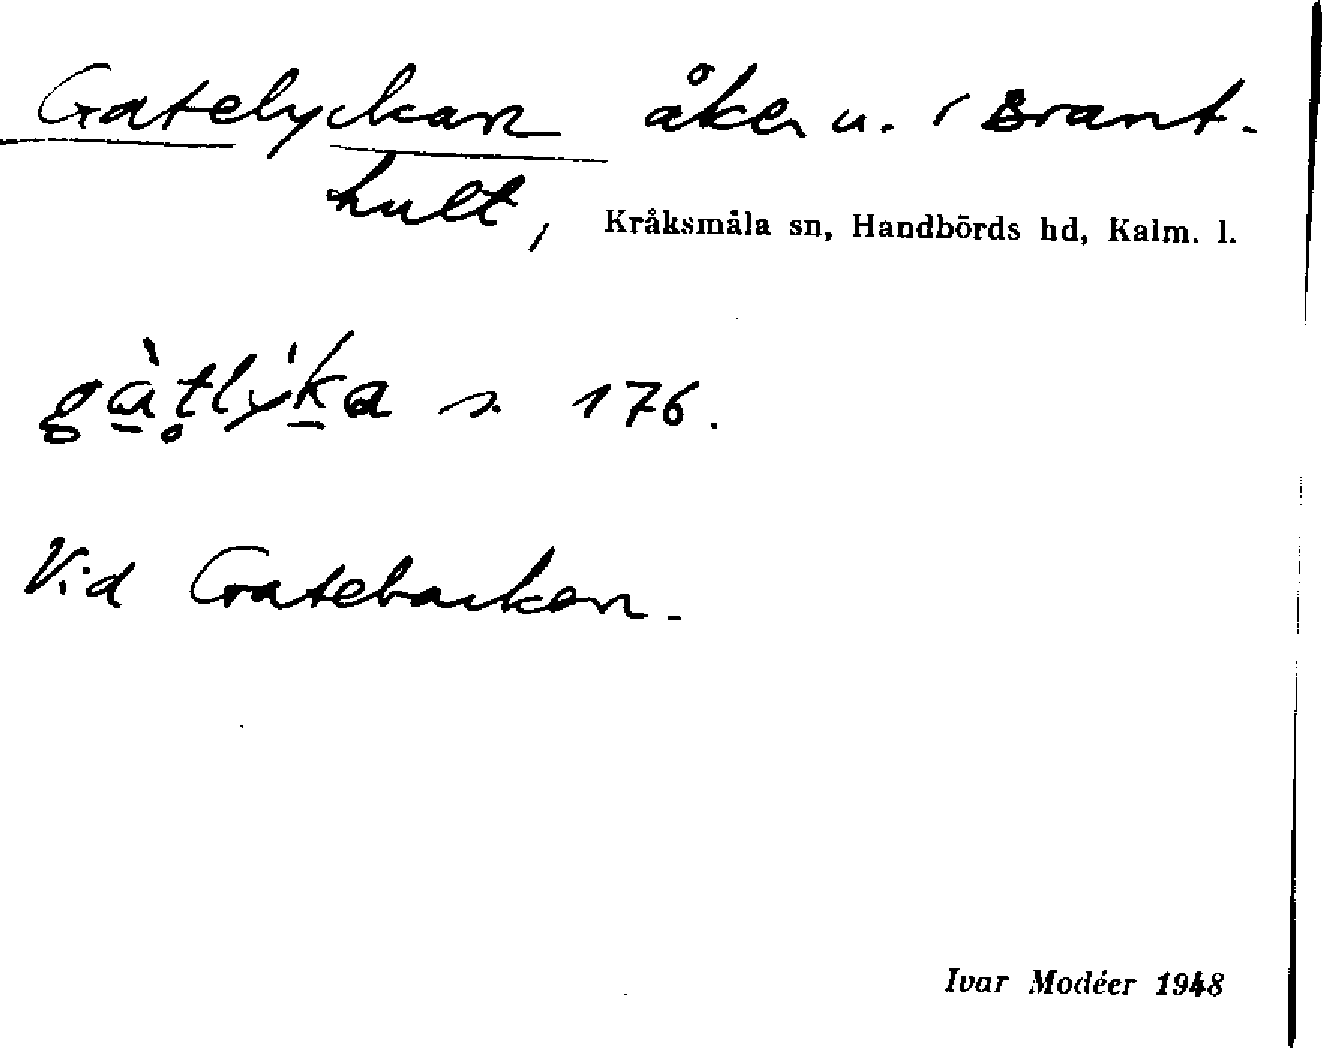 Gatelyckan åker u. i Brant-
hult, Kråksmåla sn, Handbörds hd, Kalm. l.
gàtlýka s. 176.
Vid Gatebacken.
Ivar Modéer 1948